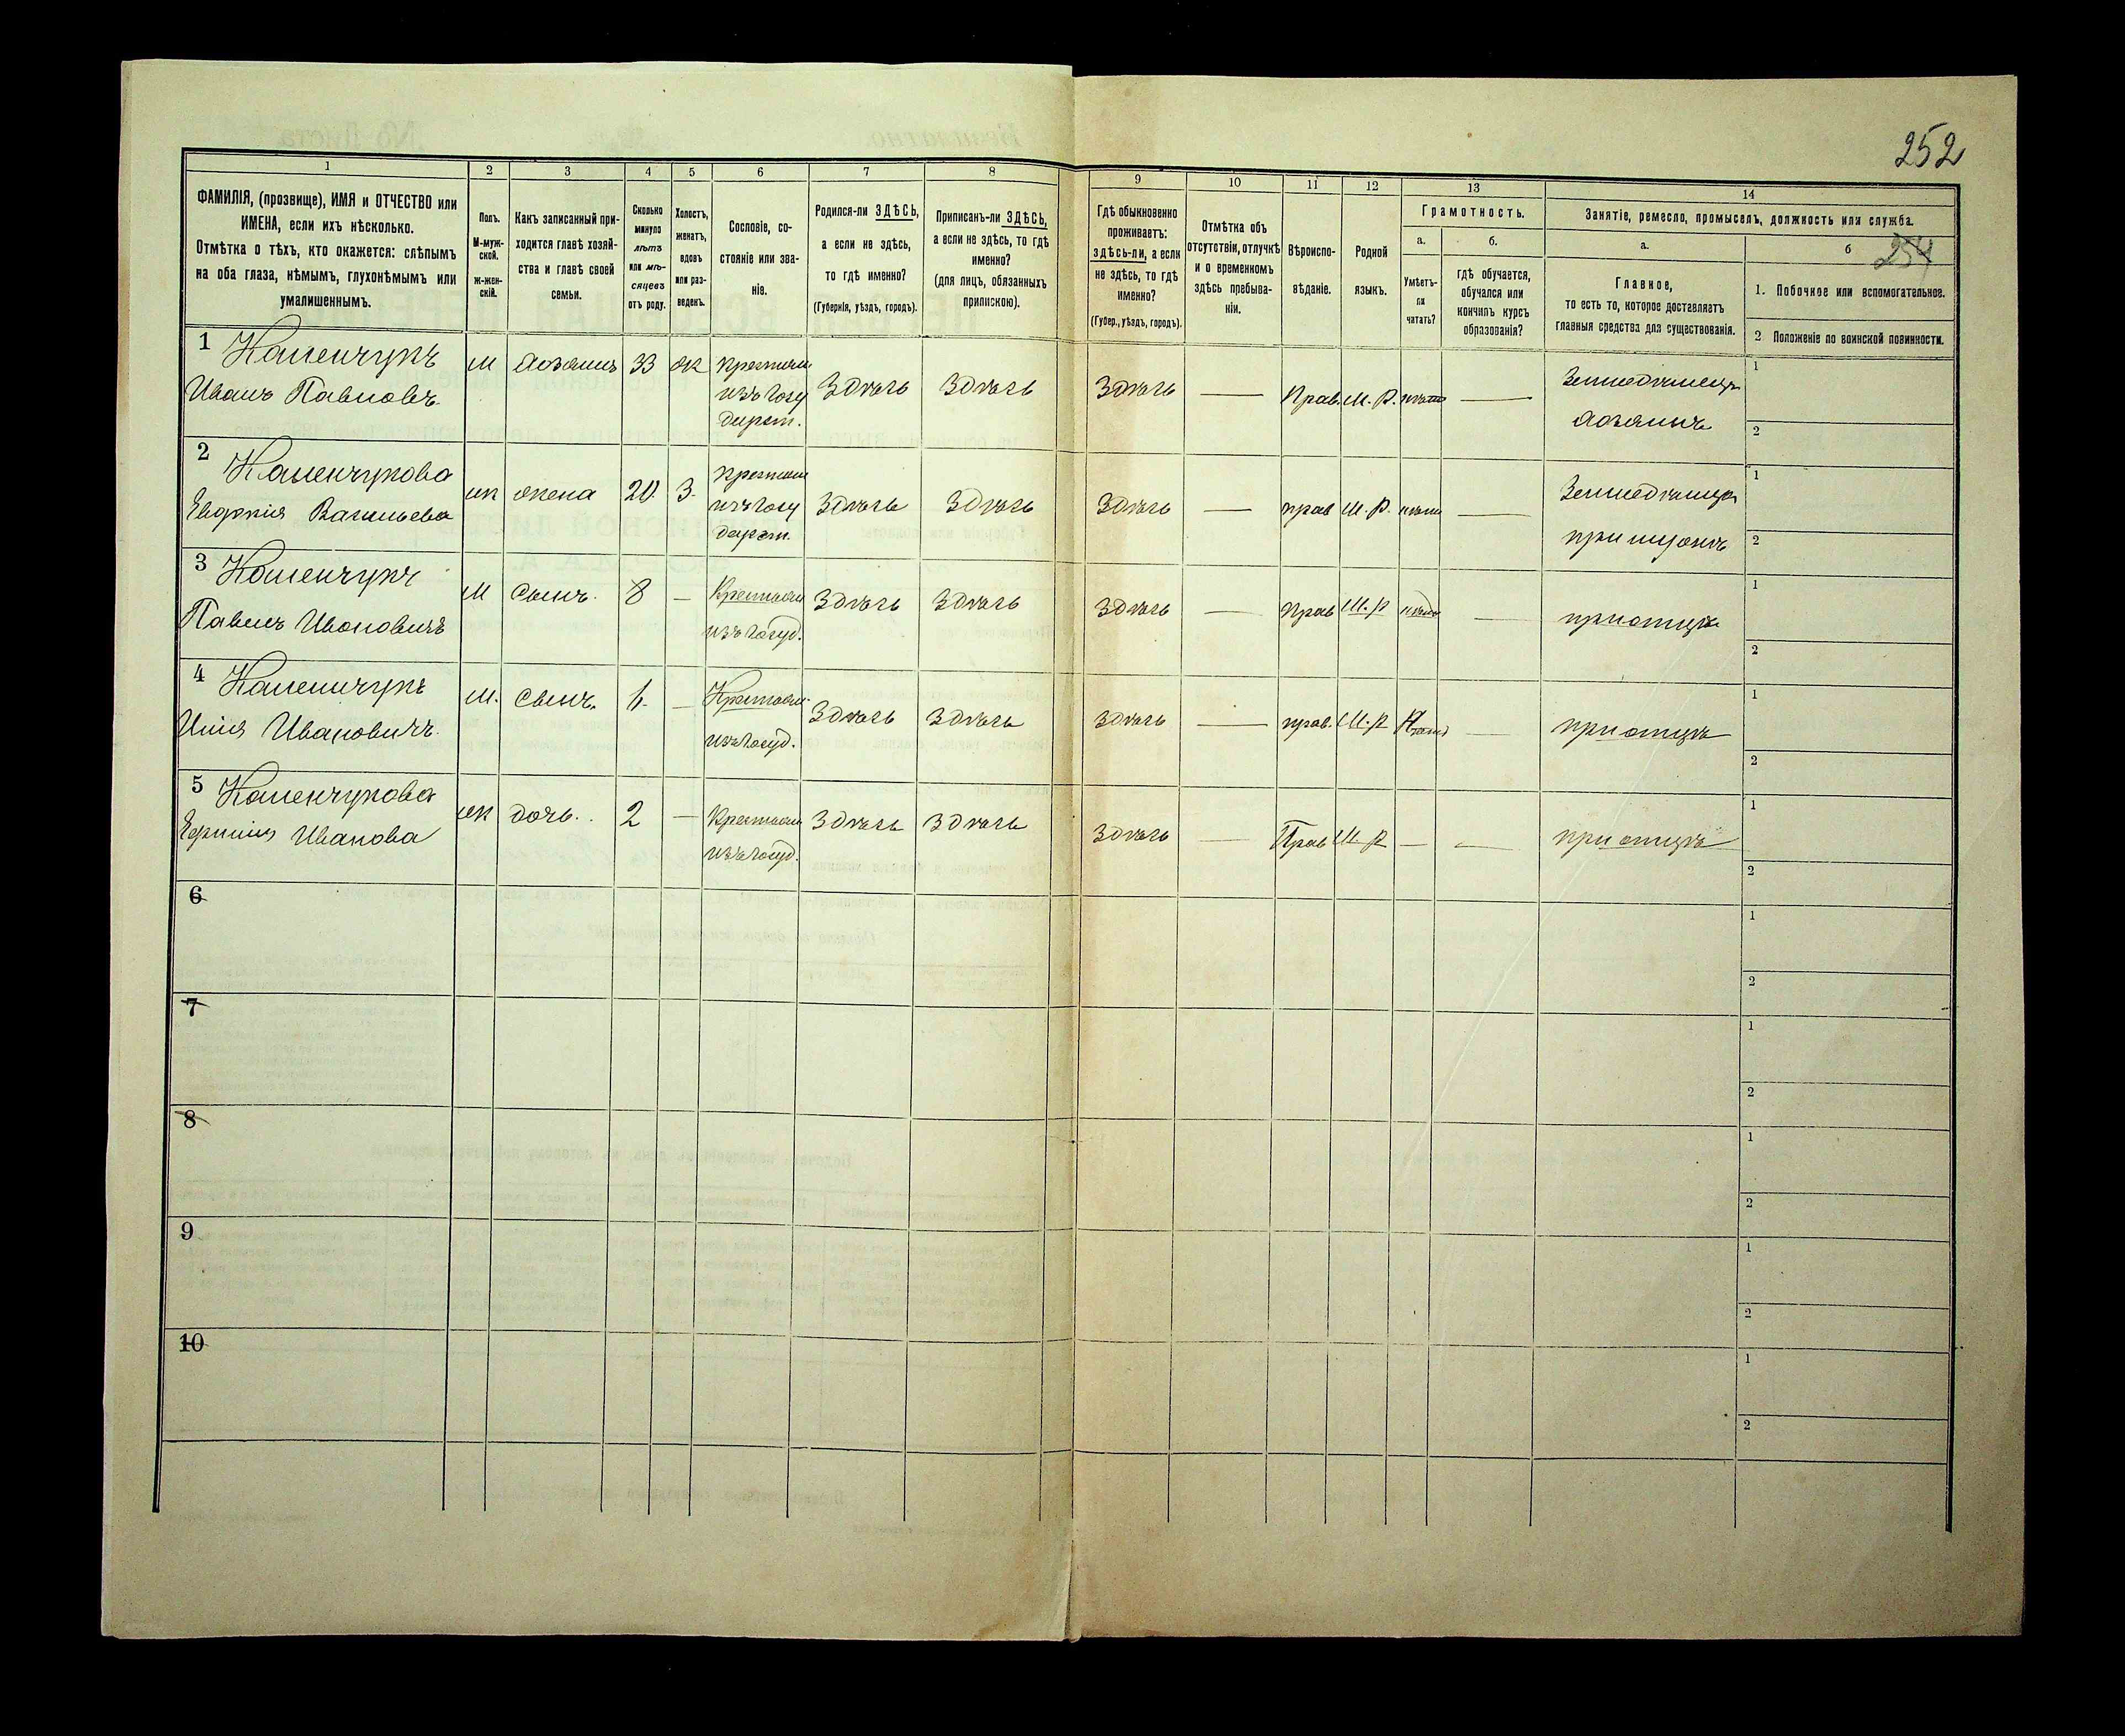 252
1 2 3 4 5 6 7 8 9 10 11 12 13 14
ФАМИЛІЯ, (прозвище), ИМЯ и ОТЧЕСТВО или
ИМЕНА, если ихъ нѣсколько.
Отмѣтка о тѣхъ, кто окажется: слѣпымъ
на оба глаза, нѣмымъ, глухонѣмымъ или
умалишеннымъ.
Полъ.
М-муж-
ской.
Ж-жен-
скій.
Какъ записанный при-
ходится главѣ хозяй-
ства и главѣ своей
семьи.
Сколько
минуло
лѣтъ
или мѣ-
сяцевъ
отъ роду.
Холостъ,
женатъ,
вдовъ
или раз-
веденъ.
Сословіе, со-
стояніе или зва-
ніе.
Родился-ли ЗДѢСЬ,
а если не здѣсь,
то гдѣ именно?
(Губернія, уѣздъ, городъ).
Приписанъ-ли ЗДѢСЬ,
а если не здѣсь, то гдѣ
именно?
(для лицъ, обязанныхъ
припискою).
Гдѣ обыкновенно
проживаетъ:
здѣсь-ли, а если
не здѣсь, то гдѣ
именно?
(Губер., уѣздъ, городъ).
Отмѣтка объ
отсутствіи, отлучкѣ
и о временномъ
здѣсь пребыва-
ніи.
Вѣроиспо-
вѣданіе.
Родной
языкъ.
Грамотность.
а.
Умѣетъ-
ли
читать?
б.
гдѣ обучается,
обучался или
кончилъ курсъ
образованія?
Занятіе, ремесло, промыселъ, должность или служба.
а.
Главное,
то есть то, которое доставляетъ
главныя средства для существованія.
б
254
1. Побочное или вспомогательное.
2 Положеніе по воинской повинности.
1
Иванъ Павловъ
М
хозяинъ
33
ж
крестьян
изъ госу
дарст.
Здѣсь
Здѣсь
Здѣсь
—
Прав.
М. Р.
нѣтъ
—
Земледѣлецъ
хозяинъ
1
2
2
Евдокія Васильева
ж
жена
20.
З.
крестьян
изъ госу
дарст.
Здѣсь
Здѣсь
Здѣсь
—
прав
М. Р.
нѣтъ
—
при мужѣ
1
2
3
Павелъ Ивановичъ
М
сынъ.
8
—
Крестьян
изъ госуд.
Здѣсь
Здѣсь
Здѣсь
—
Прав
М. Р
—
при отцѣ
1
2
4
Илія Ивановичъ.
М.
сынъ.
—
Крестьян
изъ госуд.
Здѣсь
Здѣсь
Здѣсь
—
прав.
М. Р
—
при отцѣ
1
2
5
Иванова
ж
дочь.
2
—
Крестьян
изъ госуд.
Здѣсь
Здѣсь
Здѣсь
—
Прав
М. Р
—
—
при отцѣ
1
2
6
1
2
7
1
2
8
1
2
9
1
2
10
1
2